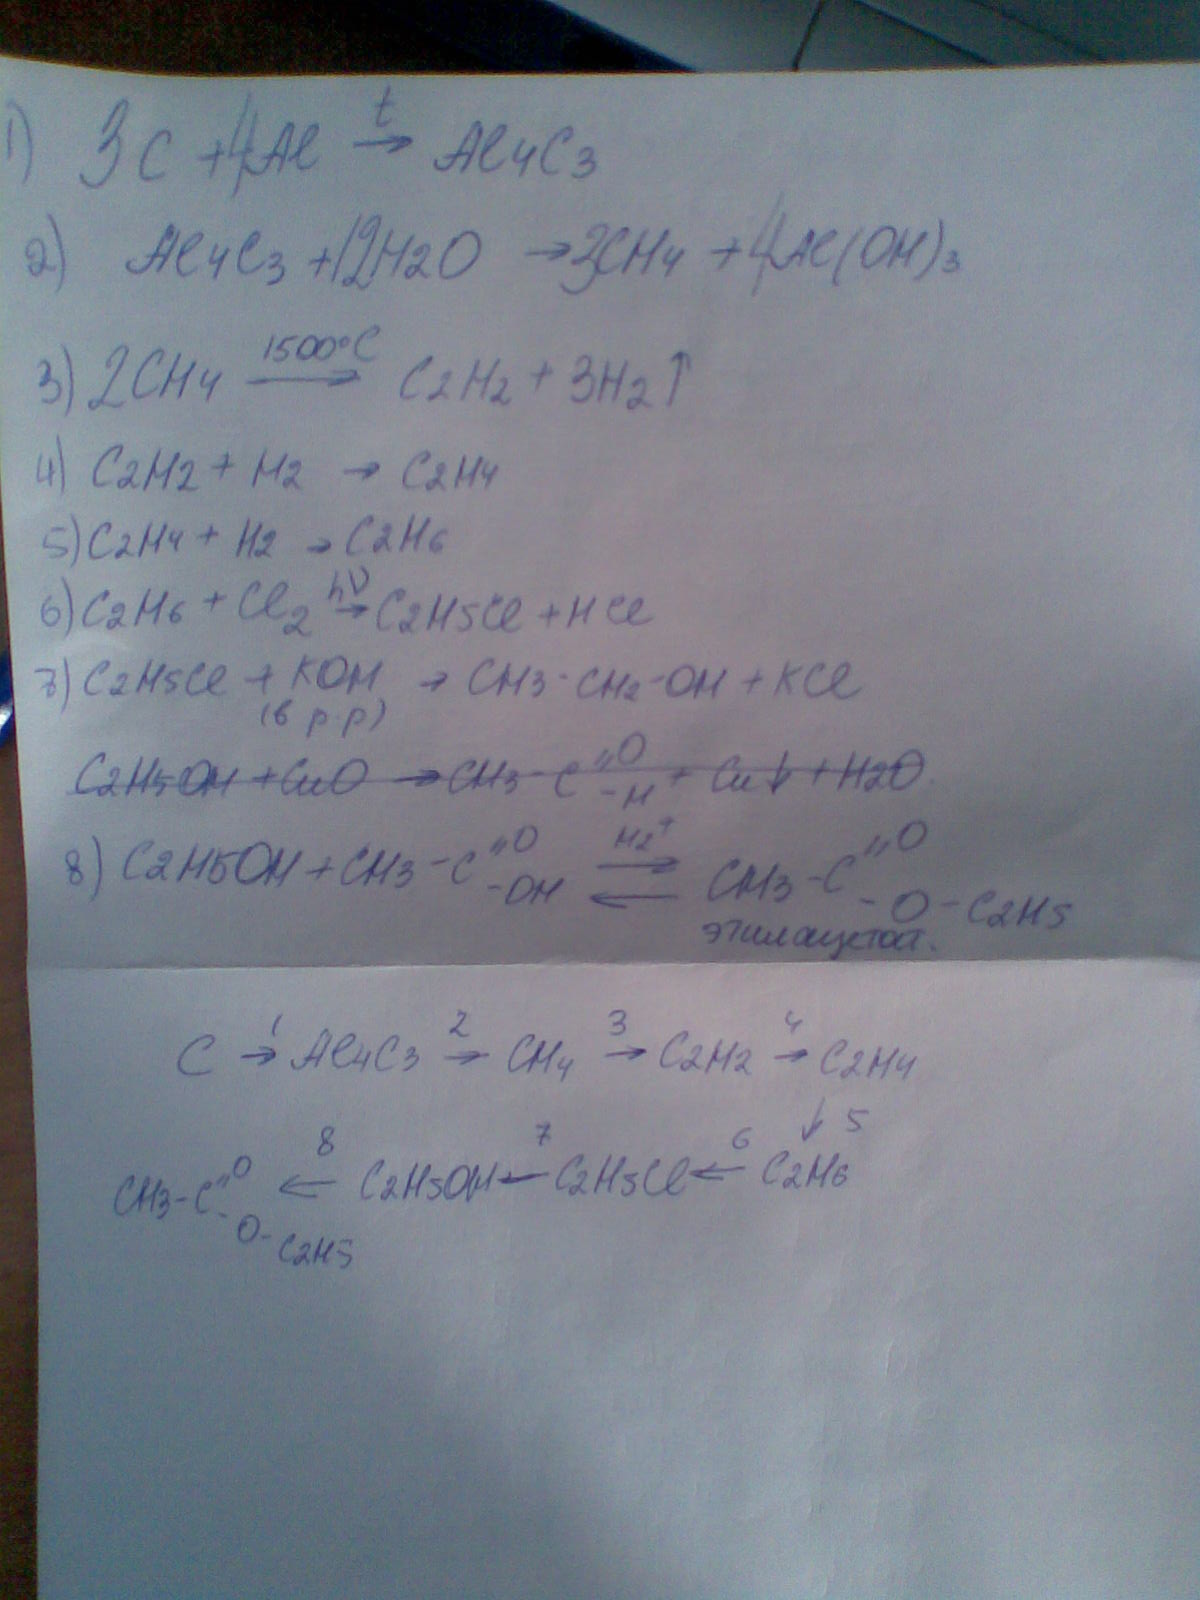 1) 3C + 4Al t→ Al4C3
2) Al4C3 + 12H2O → 3CH4 + 4Al(OH)3
3) 2CH4 1500°C→ C2H2 + 3H2↑
4) C2H2 + H2 → C2H4
5) C2H4 + H2 → C2H6
6) C2H6 + Cl2 hν→ C2H5Cl + HCl
7) C2H5Cl + KOH → CH3-CH2-OH + KCl
(в р-р)
C2H5OH + CuO → CH3-C=O-H + Cu↓ + H2O
8) C2H5OH + CH3-C=O-OH H2+ ⇄ CH3-C=O-O-C2H5
этилацетат.
C 1→ Al4C3 2→ CH4 3→ C2H2 4→ C2H4
↓ 5
CH3-C=O ← 8 C2H5OH ← 7 C2H5Cl ← 6 C2H6
O-C2H5